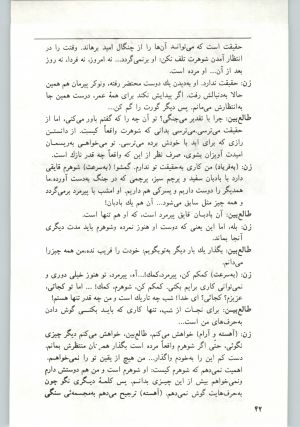 حقیقت است که می‌تواند آن‌ها را از چنگال امید برهاند. وقتت را در
انتظار آمدن شوهرت تلف نکن؛ او برنمی‌گردد... نه امروز، نه فردا، نه روز
بعد از آن... او مرده است.
زن: حقیقت ندارد. او به‌دیدن یك دوست محتضر رفته، ونوکر پیرمان هم همین
حالا به‌دنبالش رفت. اگر پیدایش نکند برای همهٔ عمر، درست همین جا
به‌انتظارش می‌مانم. پس دیگر گورت را گم کن...
طالع‌بین: چرا با تقدیر می‌جنگی؟ تو آن چه را که گفتم باور می‌کنی، اما از
حقیقت می‌ترسی. می‌ترسی بدانی که شوهرت واقعاً کیست. از دانستن
رازی که برای ابد با خودش برده می‌ترسی. تو می‌خواهی به‌ریسمان
امیدت آویزان بشوی، صرف نظر از این که واقعاً چه قدر نازك است.
زن: من کاری به‌حقیقت تو ندارم. گمشو! (به‌سرعت) شوهرم قایقی
دارد با بادبان سفید و پرچم سبز، پرچمی که در جنگ به‌دست آورده. ما
همدیگر را دوست داریم و پسرکی هم داریم. او امشب با پیرمرد برمی‌گردد
و همه چیز مثل سابق می‌شود... آن هم یك بادبان!
طالع‌بین: آن بادبان قایق پیرمرد است، که او هم تنها است.
زن: بله، اما این یعنی که دوست او هنوز نمرده وشوهرم باید مدت دیگری
آنجا بماند.
طالع‌بین: بگذار یك بار دیگر به‌توبگویم: خودت را فریب نده، من همه چیز را
می‌دانم.
زن: (به‌سرعت) کمکم کن، پیرمرد، کمك!... آه، پیرمرد، تو هنوز خیلی دوری و
نمی‌توانی کاری برایم بکنی. کمکم کن، شوهرم، کمك! ... اما تو کجائی،
عزیزم؟ کجائی؟ ای خدا! شب چه تاریك است و من چه قدر تنها هستم!
طالع‌بین: برای نجات از شب، تنها کاری که باید بکنی گوش دادن
به‌حرف‌های من است.
زن: (آهسته و آرام) خواهش می‌کنم، طالع‌بین، خواهش می‌کنم دیگر چیزی
نگوئی، حتی اگر شوهرم واقعاً مرده است بگذار همر تنان منتظرش بمانم.
دست کم این را به‌خودم واگذار... من هیچ از یقین تو را نمی‌خواهم.
اهمیت نمی‌دهم که شوهرم کیست: او شوهرم است و من هم دوستش دارم
ونمی‌خواهم بیش از این چیزی بدانم. پس کلمهٔ دیگری نگو چون
به‌حرف‌هایت گوش نمی‌دهم. (آهسته) ترجیح می‌دهم به‌مجسمه‌ئی سنگی
۴۲